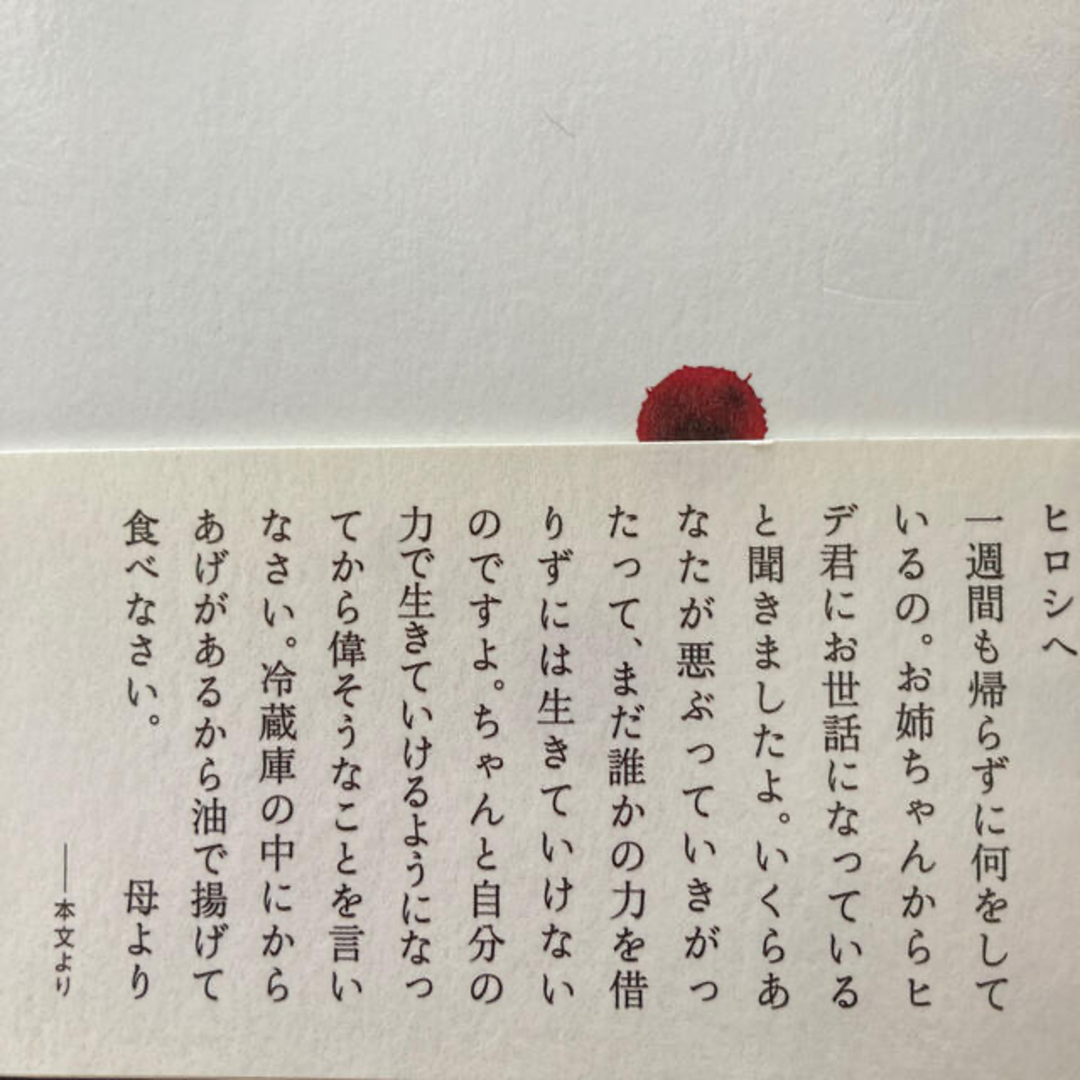 ヒロシへ
一週間も帰らずに何をして
いるの。お姉ちゃんからヒ
デ君にお世話になっている
と聞きましたよ。いくらあ
なたが悪ぶっていきがっ
たって、まだ誰かの力を借
りずには生きていけない
のですよ。ちゃんと自分の
力で生きていけるようになっ
てから偉そうなことを言い
なさい。冷蔵庫の中にから
あげがあるから油で揚げて
食べなさい。 母より
──本文より